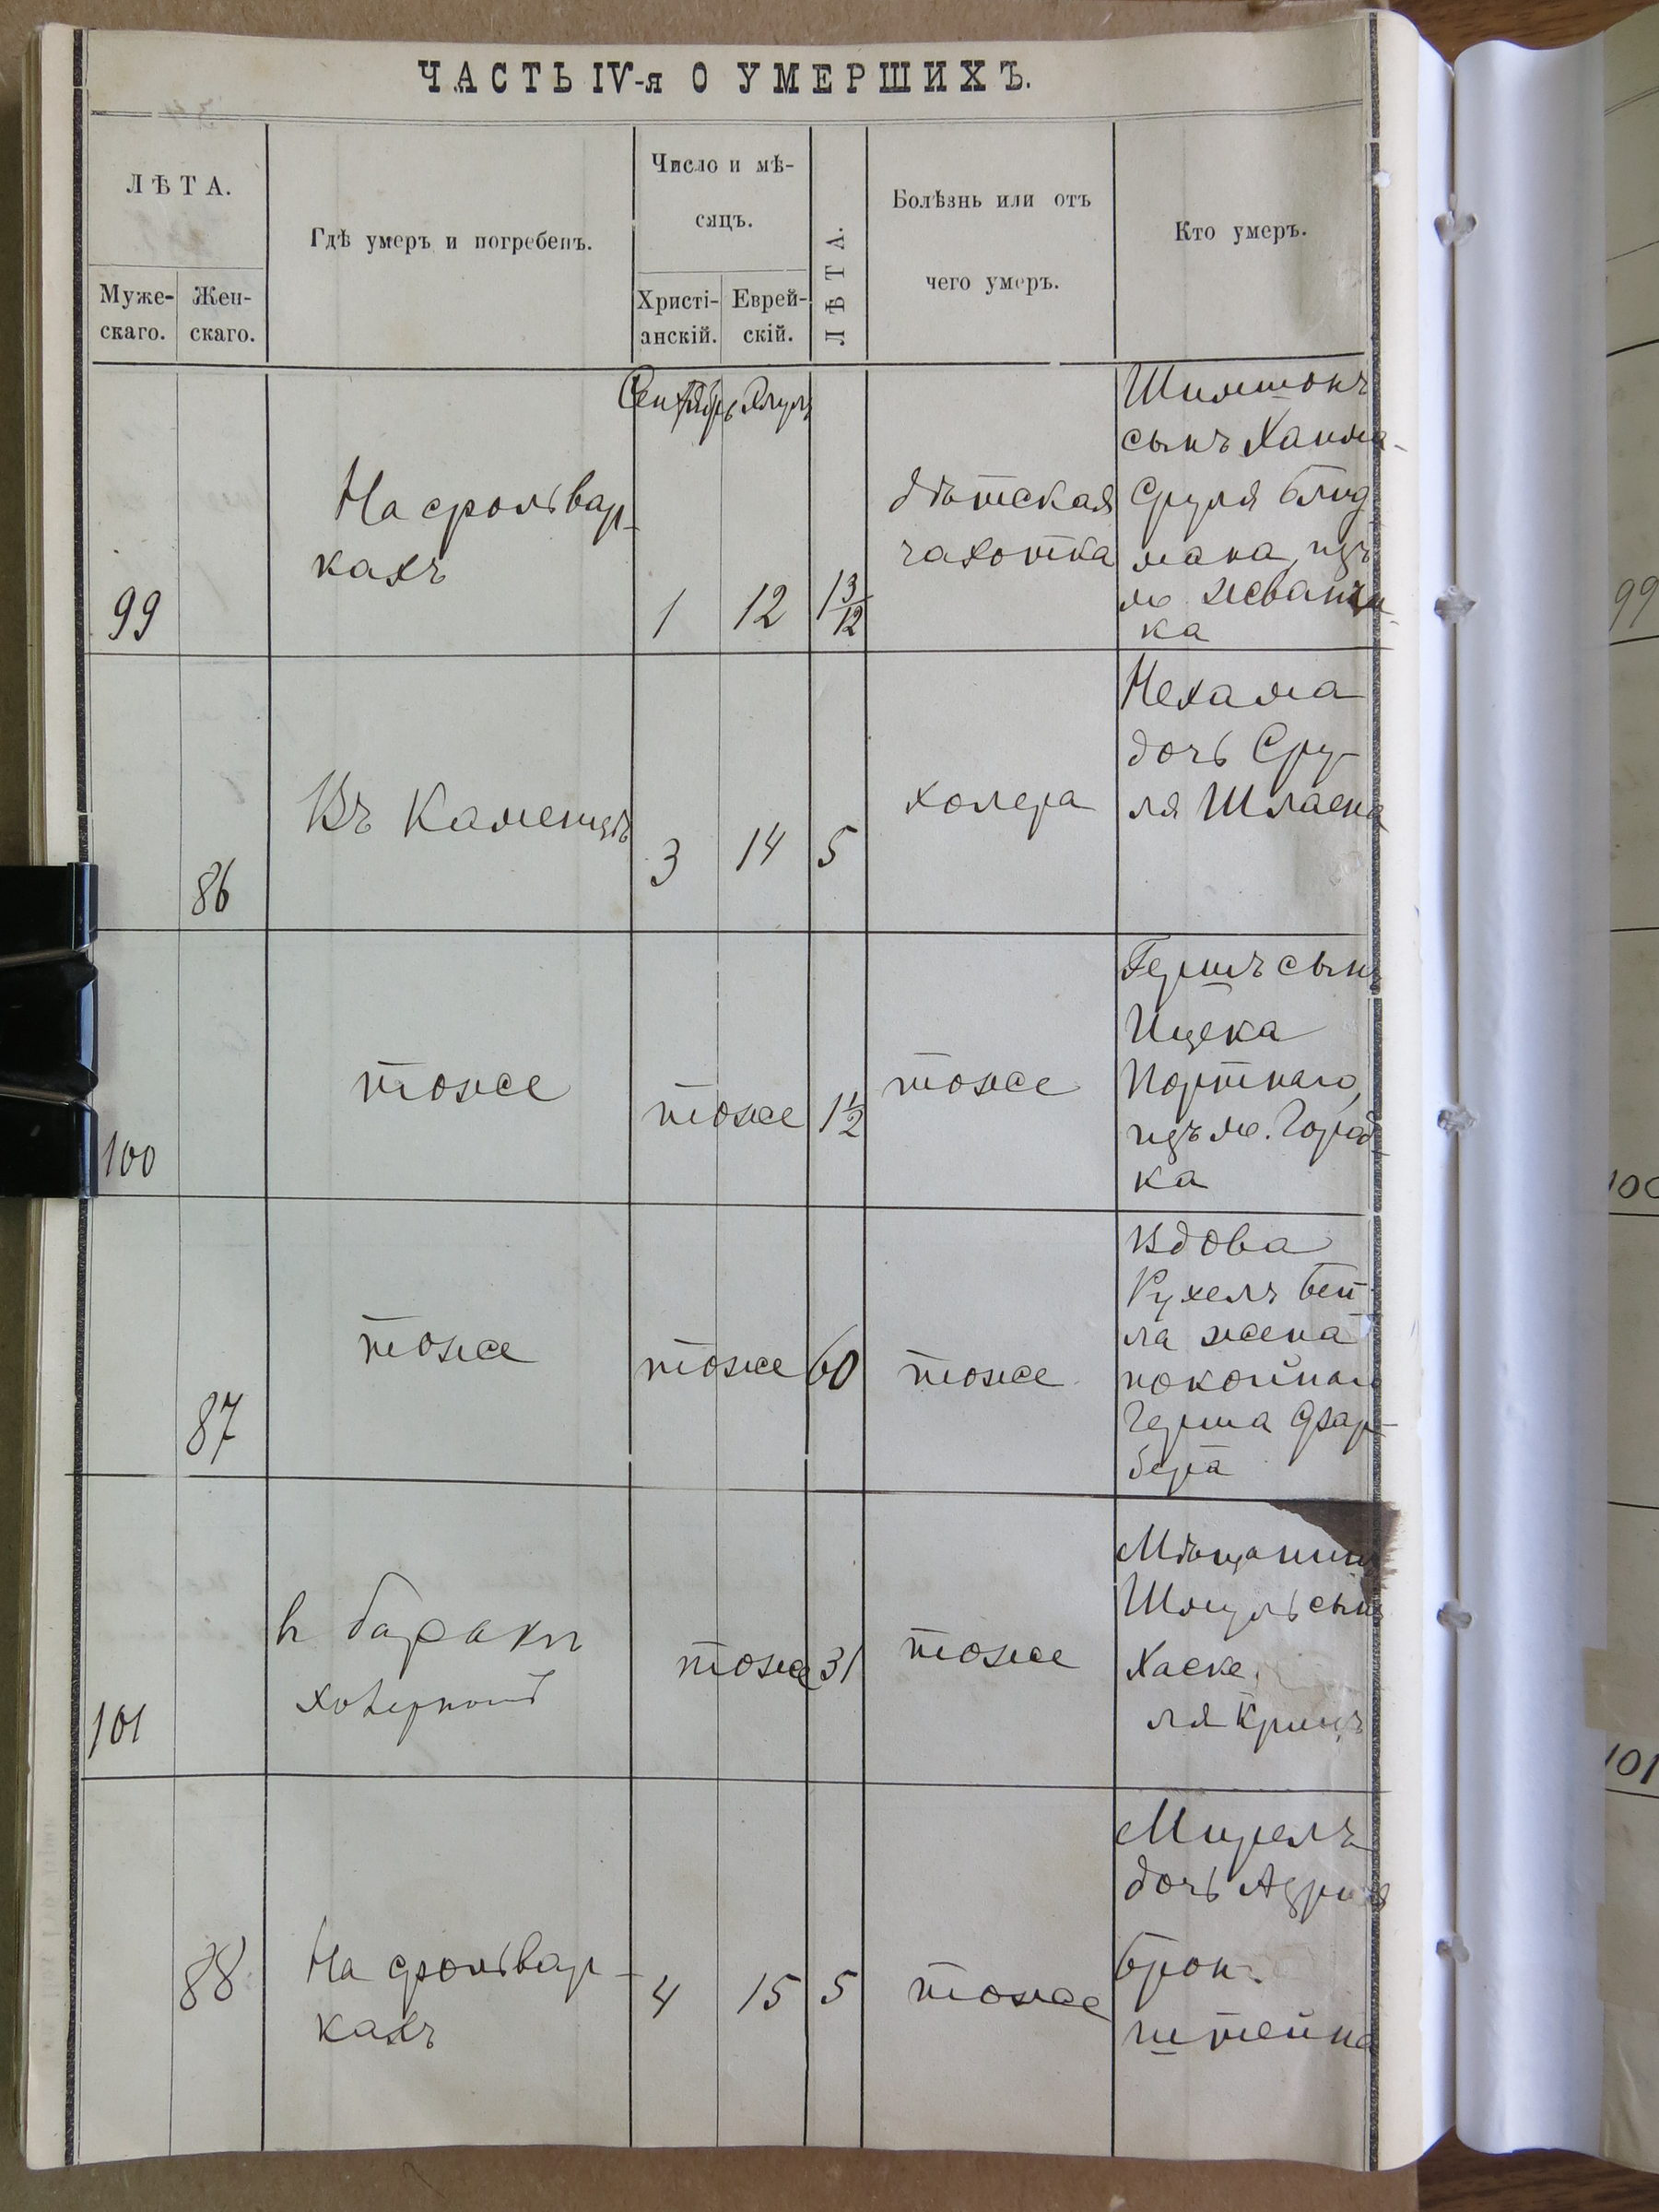 ЧАСТЬ IV-я О УМЕРШИХЪ.
ЛѢТА.
Муже-
скаго.
Жен-
скаго.
Гдѣ умеръ и погребенъ.
Число и мѣ-
сяцъ.
Христі-
анскій.
Еврей-
скій.
ЛѢТА.
Болѣзнь или отъ
чего умеръ.
Кто умеръ.
Сентябрь Элулъ
99
На фольвар-
кахъ
1
12
1 3/12
дѣтская
чахотка
Шимшонъ
сынъ Хаима-
Сруля Блид
мана, изъ
м. Жванчи-
ка
86
Въ Каменцѣ
3
14
5
холера
Нехама
дочь Сру-
ля Шлаена
100
тоже
тоже
1 1/2
тоже
Гершъ сынъ
Ицека
Портнаго,
изъ м. Город-
ка
87
тоже
тоже
60
тоже
Вдова
Рухель Бей-
ла жена
покойнаго
Герша Фар-
бера
101
в баракѣ
холерной
тоже
31
тоже
Мѣщанинъ
Шмуль сынъ
Хаске
ля Кринъ
88
На фольвар-
кахъ
4
15
5
тоже
Мирелъ
дочь Азриля
Брон-
штейна
99
100
101